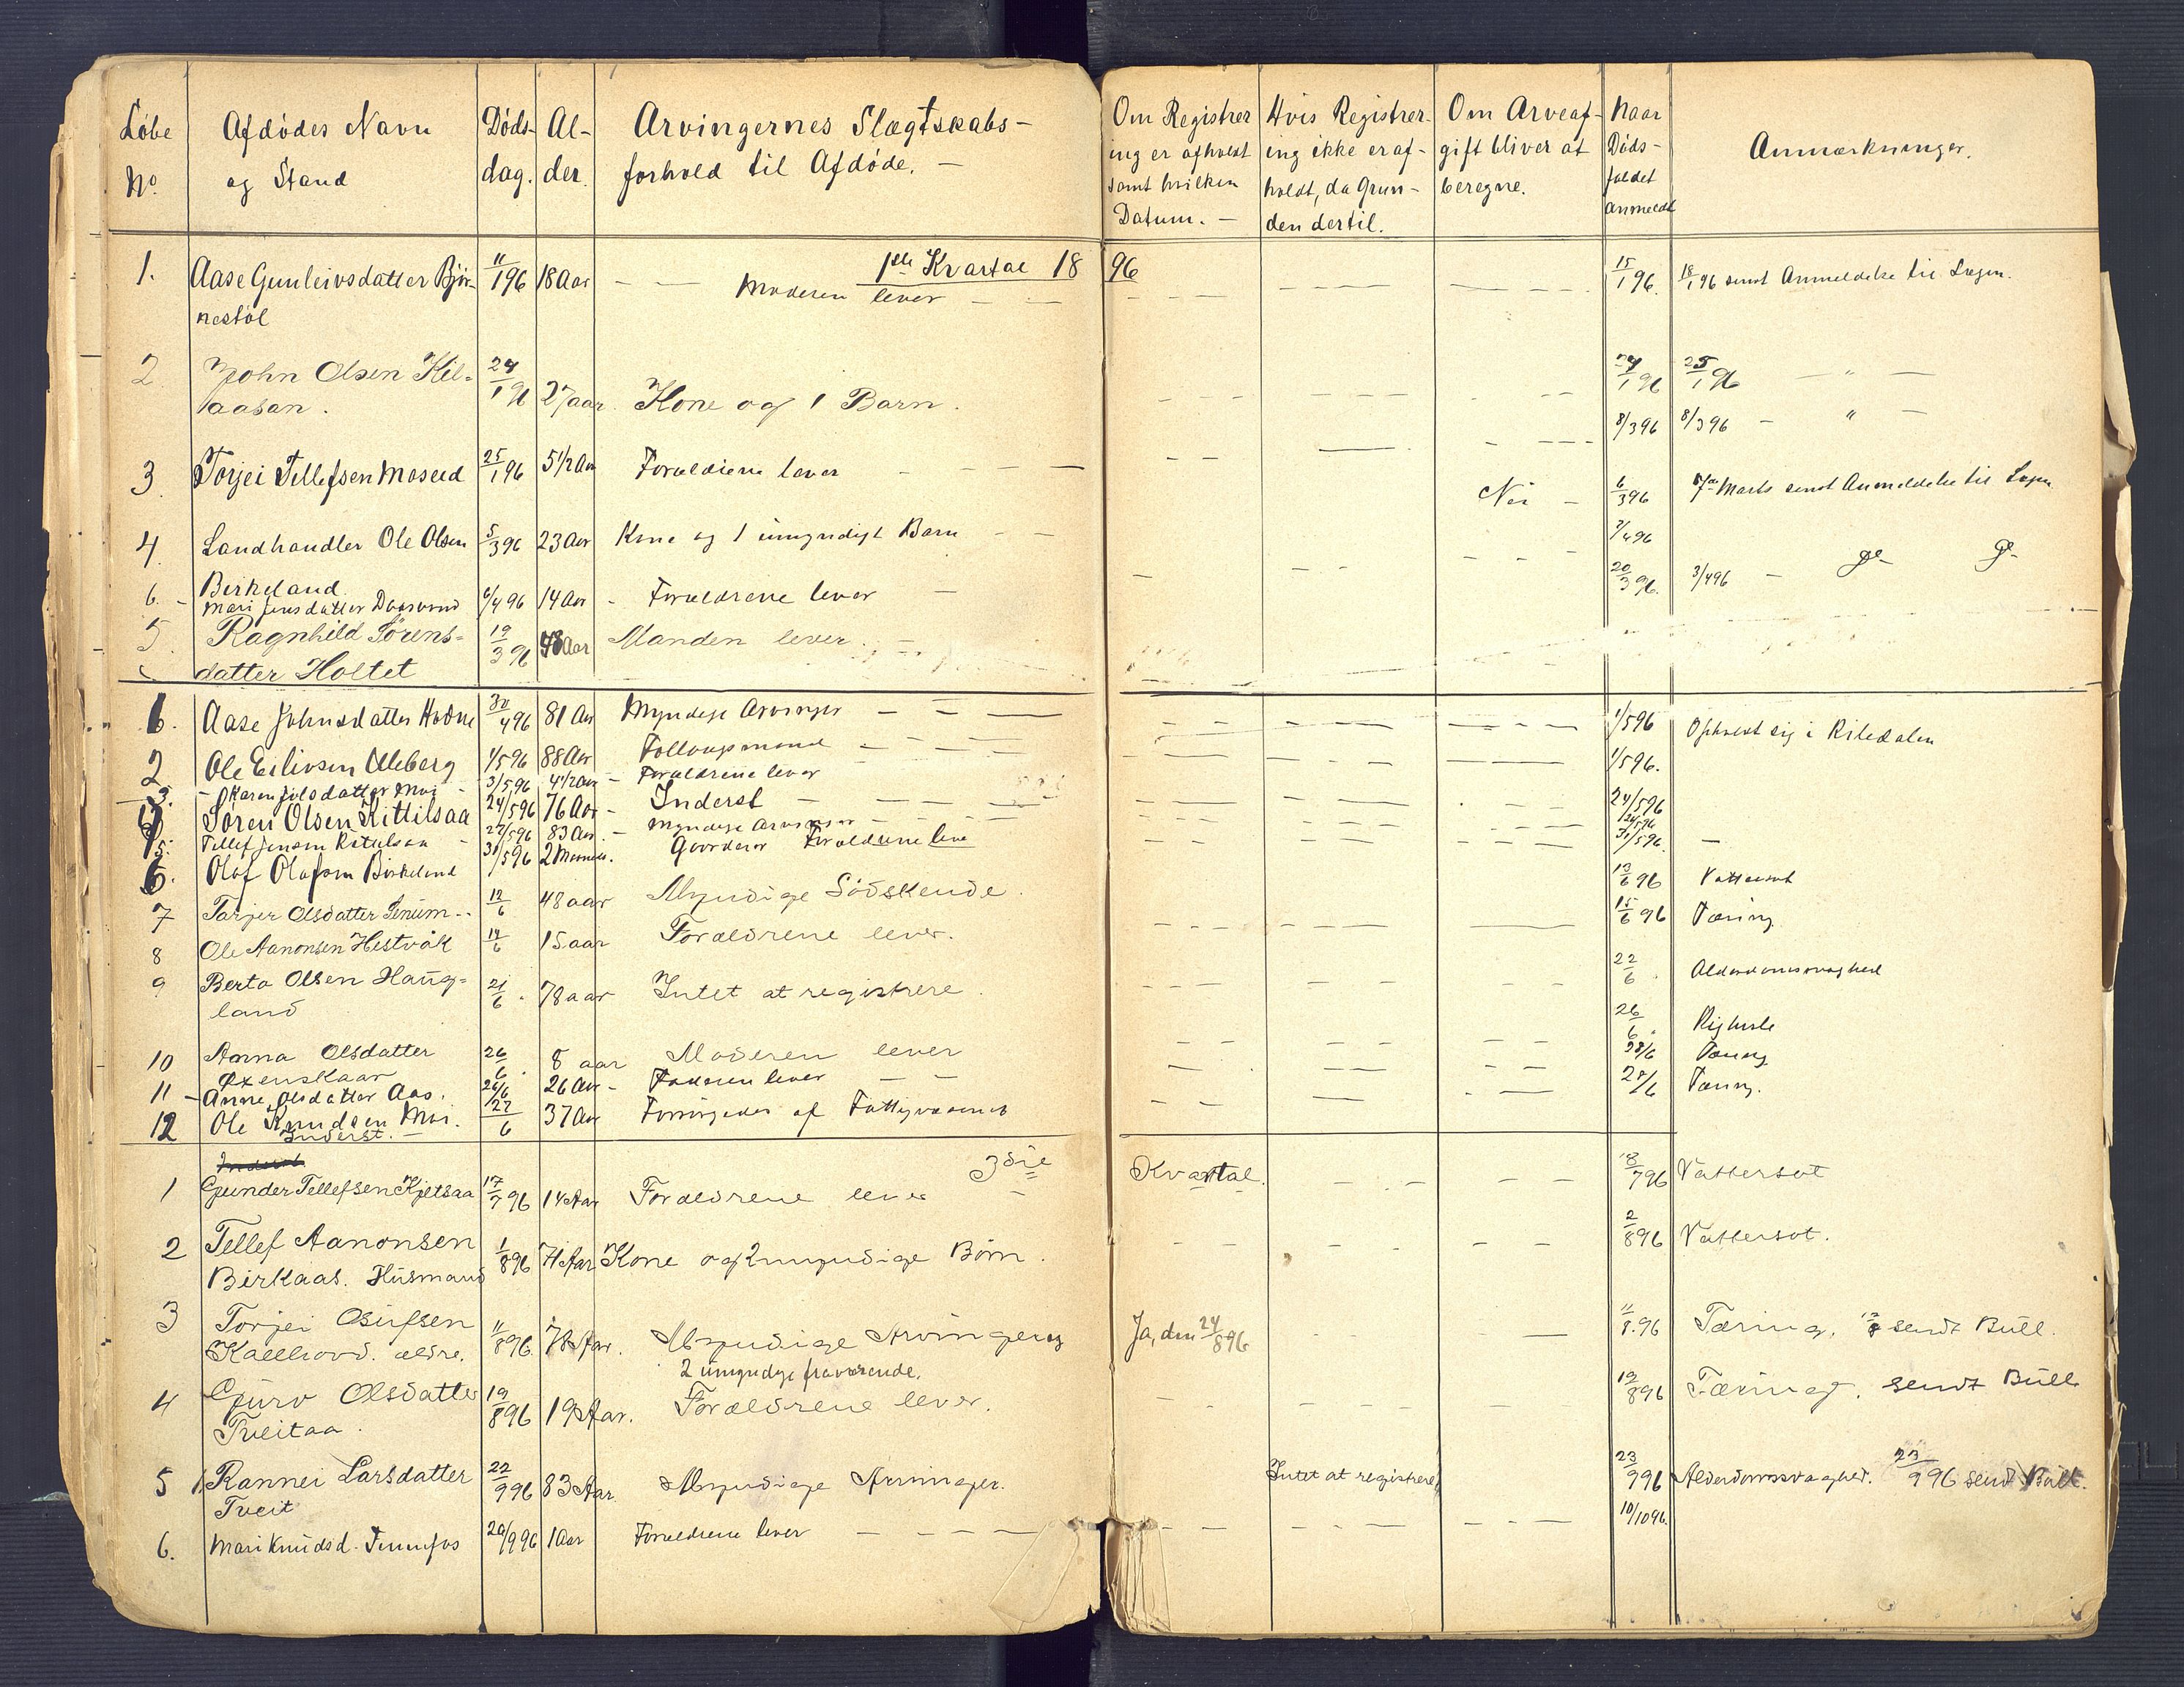 Löbe No. Afdödes Navn og Stand Döds- dag. Al- der. Arvingernes Slægtskabs- forhold til Afdöde. — Om Registrer ing er afholdt samt hvilken Datum. — Hvis Registrer- ing ikke er af- holdt, da Grun- den dertil. Om Arveaf- gift bliver at beregne. Naar Döds- faldet anmeldt Anmærkninger.
1ste Kvartal 1896
1. Aase Gunleivsdatter Björ- 11/1 96 18 Aar — — Moderen lever — — 15/1 96. 18/1 96 sendt Anmeldelse til Lægen.
nestöl
2 John Olsen Kil- 24/1 96 27 aar Kone og 1 Barn. 24/1 96 25/1 96 — " —
aasen.
3. Torjei Tellefsen Moseid 25/1 96 5 1/2 Aar Forældrene lever — — — — 8/3 96 8/3 96 — " —
4. Landhandler Ole Olsen 5/3 96 23 Aar Kone og 1 umyndigt Barn — — Nei — 6/3 96 7de Marts sendt Anmeldelse til Lægen
Birkeland
6. - Mari Jensdatter 6/4 96 14 Aar - Forældrene lever — 7/4 96
5. Ragnhild Sörens- 19/3 96 48 Aar Manden lever. — 20/3 96. 3/4 96 —
datter Holtet
1. Aase Johnsdatter Hodne 30/4 96 81 Aar Myndige Arvinger — — — 1/5 96 Opholdt sig i Riledalen
2 Ole Eilivsen Uleberg 1/5 96 88 Aar Follaugsmand — — — 1/5 96.
3. - Karen Jolsdatter Moi - 3/5 96 4 1/2 Aar - Forældrene lever
4 Sören Olsen Kittilsaa 24/5 96 76 Aar - Inderst — — — — 24/5 96
5. Tellef Jensen Kitelsaa - 27/5 96 83 Aar. - Myndige Arvinger — — —
6. Olaf Olafsen Birkeland 30/5 96 2 Maaneder. Forældrene leve 31/5 96 —
7 Tarjer Olsdatter 12/6 48 aar Myndige Södskende. 13/6 96 Vattersot
8 Ole Aanonsen Hestvåk 14/6 15 aar Forældrene lever. 15/6 96 Tæring
9 Berta Olsen Haug- 21/6. 78 aar Intet at registrere. 22/6. Alderdomssvaghed
land
10 Anna Olsdatter 26/6. 8 aar Moderen lever 26/6.
Øxenskaar
11 - Anne Olsdatter Aas. 26/6 26 Aar - Faderen lever — — 28/6 Tæring
12 Ole Knudsen Moi. 27/6 37 Aar Forsörgedes af Fattigvæsenet 28/6 Tæring.
Inderst. —
Inderst 3die Kvartal.
1 Gunder Tellefsen Kjetsaa 17/7 96 14 Aar Forældrene lever 18/7 96 Vattersot
2 Tellef Aanonsen 1/8 96 71 Aar Kone og 2 myndige Börn. 2/8 96 Vattersot.
Birkaas. Husmand
3 Torjei Osufsen 11/8 96. 78 Aar. Myndige Arvinger og Ja, den 24/8 96 11/8. 96 Tæring. 12/8 sendt Bull.
Kallhovd. ældre. 2 umyndige fraværende.
4 Guro Olsdatter 19/8 96 19 Aar. Forældrene lever. 19/8 96 Tæring. sendt Bull
Tveitaa.
5 Rannei Larsdatter 22/9 96 83 Aar Myndige Arvinger. Intet at registrere. 23/9 96 Alderdomssvaghed. 23/9 96 sendt Bull.
Tveit
6. Mari Knudsd. 20/9 96 1 Aar Forældrene lever — — — — 10/10 96.